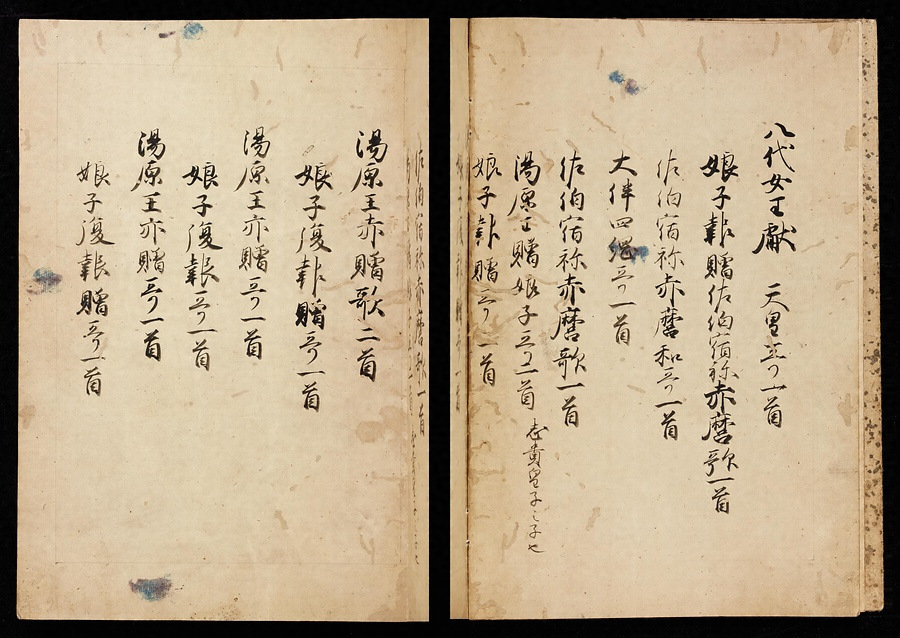 八代女王獻　天皇哥一首
娘子報贈佐伯宿祢赤麿歌一首
佐伯宿祢赤麿和哥一首
大伴四縄哥一首
佐伯宿祢赤麿歌一首
湯原王贈娘子哥二首 志貴皇子之子也
娘子報贈哥一首
湯原王亦贈歌二首
娘子復報贈哥一首
湯原王亦贈哥一首
娘子復報哥一首
湯原王亦贈哥一首
娘子復報贈哥一首